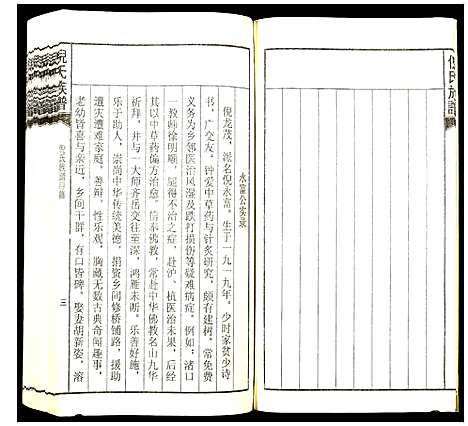 倪氏族譜
永富公实录
倪龙茂，派名倪永富，生于一九一九年，少时家贫少诗
书，广交友。钟爱中草药与针灸研究，颇有建树。常免费
义务为乡邻医治风湿及跌打损伤等疑难病症。例如；渚口
一教师徐明顺，显得不治之症，赴沪、杭医治未果，后经
其以中草药偏方治愈。信奉佛教，常赴中华佛教名山九华
祈拜，并与一大师齐岳交往至深，鸿雁未断。乐善好施，
乐于助人，崇尚中华传统美德，捐资乡间修桥铺路，援助
遭灾遭难家庭。善辩，性乐观，胸藏无数古典奇闻趣事，
老幼皆喜与亲近，乡间干群，有口皆碑。娶妻胡新姿，溶
三
倪氏族譜